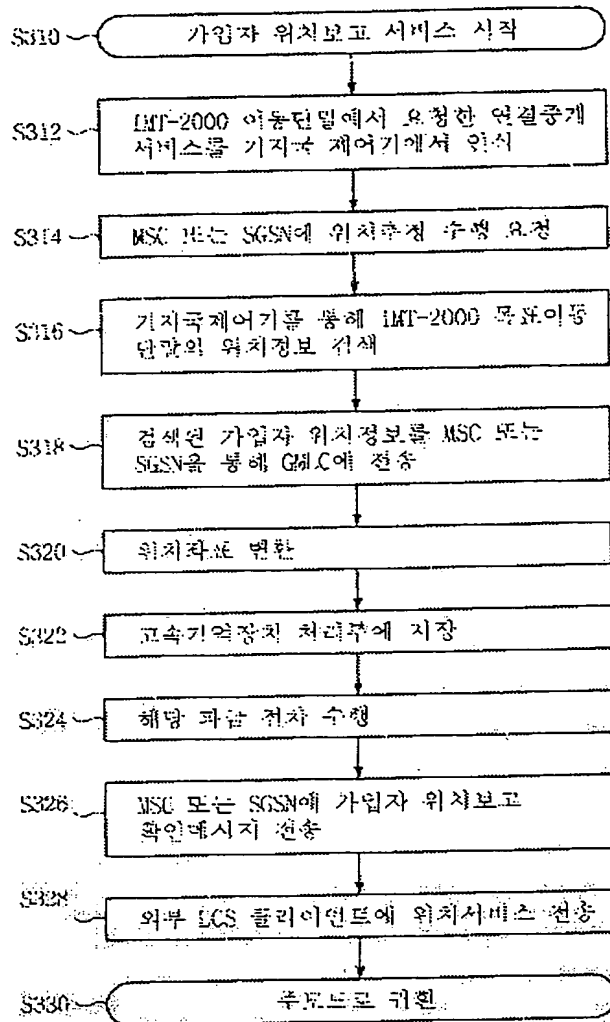 S310 가입자 위치보고 서비스 시작
S312 IMT-2000 이동단말에서 요청한 연결중계
서비스를 기지국 제어기에서 인식
S314 MSC 또는 SGSN에 위치추정 수행 요청
S316 기지국제어기를 통해 IMT-2000 목표이동
단말의 위치정보 검색
S318 검색된 가입자 위치정보를 MSC 또는
SGSN을 통해 GMLC에 전송
S320 위치좌표 변환
S322 고속기억장치 처리부에 저장
S324 해당 과금 절차 수행
S326 MSC 또는 SGSN에 가입자 위치보고
확인메시지 전송
S328 외부 LCS 클라이언트에 위치서비스 전송
S330 주모드로 귀환